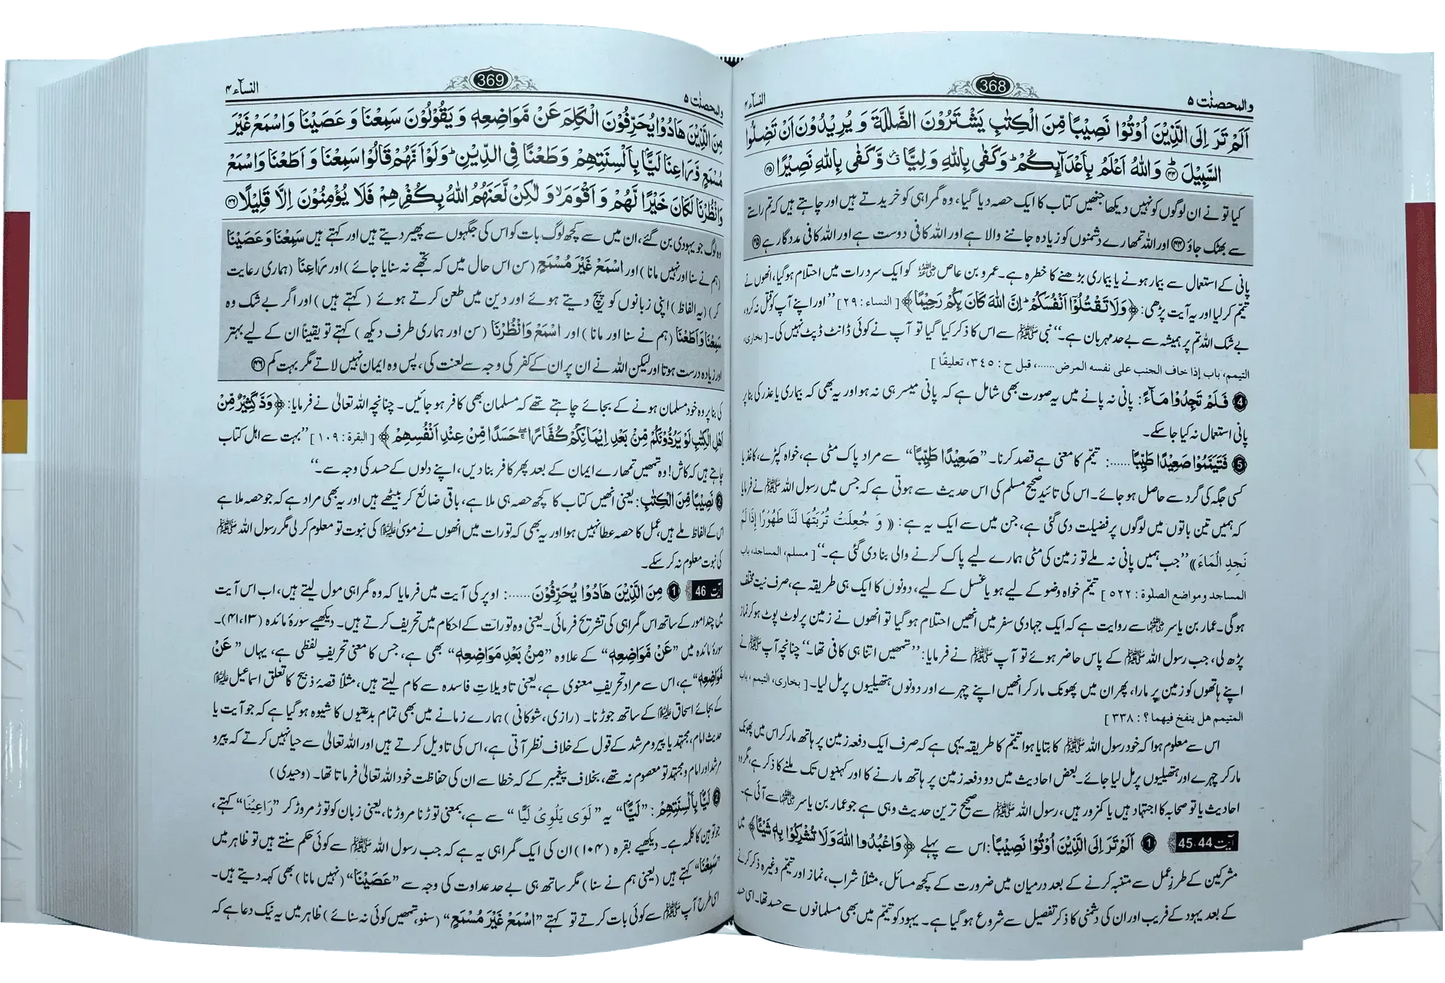 والمحصنٰت ۵
368
النساء ۴
اَلَمْ تَرَ اِلَى الَّذِيْنَ اُوْتُوْا نَصِيْبًا مِّنَ الْكِتٰبِ يَشْتَرُوْنَ الضَّلٰلَةَ وَ يُرِيْدُوْنَ اَنْ تَضِلُّوا
السَّبِيْلَ ۴۴ وَ اللّٰهُ اَعْلَمُ بِاَعْدَآىِٕكُمْ وَ كَفٰى بِاللّٰهِ وَلِيًّا وَّ كَفٰى بِاللّٰهِ نَصِيْرًا ۴۵
کیا تو نے ان لوگوں کو نہیں دیکھا جنھیں کتاب کا ایک حصہ دیا گیا، وہ گمراہی کو خریدتے ہیں اور چاہتے ہیں کہ تم راستے
سے بھٹک جاؤ ۴۴ اور اللہ تمھارے دشمنوں کو زیادہ جاننے والا ہے اور اللہ کافی دوست ہے اور اللہ کافی مددگار ہے ۴۵
پانی کے استعمال سے بیمار ہونے یا بیماری بڑھنے کا خطرہ ہے۔ عمرو بن عاص رضی اللہ عنہ کو ایک سرد رات میں احتلام ہو گیا، انھوں نے
تیمم کر لیا اور یہ آیت پڑھی: ﴿وَ لَا تَقْتُلُوْۤا اَنْفُسَكُمْ اِنَّ اللّٰهَ كَانَ بِكُمْ رَحِيْمًا﴾ [النساء : ۲۹] ”اور اپنے آپ کو قتل نہ کرو،
بے شک اللہ تم پر ہمیشہ سے بے حد مہربان ہے۔“ نبی ﷺ سے اس کا ذکر کیا گیا تو آپ نے کوئی ڈانٹ ڈپٹ نہیں کی۔ [بخاری،
التیمم، باب إذا خاف الجنب على نفسه المرض......، قبل ح : ۳۴۵، تعلیقًا]
4 فَلَمْ تَجِدُوْا مَآءً: پانی نہ پانے میں یہ صورت بھی شامل ہے کہ پانی میسر ہی نہ ہو اور یہ بھی کہ بیماری یا عذر کی بنا پر
پانی استعمال نہ کیا جا سکے۔
5 فَتَيَمَّمُوْا صَعِيْدًا طَيِّبًا......: تیمم کا معنی ہے قصد کرنا۔ ”صَعِيْدًا طَيِّبًا“ سے مراد پاک مٹی ہے، خواہ کپڑے، کاغذ یا
کسی جگہ کی گرد سے حاصل ہو جائے۔ اس کی تائید صحیح مسلم کی اس حدیث سے ہوتی ہے کہ جس میں رسول اللہ ﷺ نے فرمایا
کہ ہمیں تین باتوں میں لوگوں پر فضیلت دی گئی ہے، جن میں سے ایک یہ ہے: « وَ جُعِلَتْ تُرْبَتُهَا لَنَا طَهُوْرًا إِذَا لَمْ
نَجِدِ الْمَاءَ » ”جب ہمیں پانی نہ ملے تو زمین کی مٹی ہمارے لیے پاک کرنے والی بنا دی گئی ہے۔“ [مسلم، المساجد، باب
المساجد ومواضع الصلوة : ۵۲۲] تیمم خواہ وضو کے لیے ہو یا غسل کے لیے، دونوں کا ایک ہی طریقہ ہے، صرف نیت مختلف
ہوگی۔ عمار بن یاسر رضی اللہ عنہ سے روایت ہے کہ ایک جہادی سفر میں انھیں احتلام ہو گیا تو انھوں نے زمین پر لوٹ پوٹ ہو کر نماز
پڑھ لی، جب رسول اللہ ﷺ کے پاس حاضر ہوئے تو آپ ﷺ نے فرمایا: ”تمھیں اتنا ہی کافی تھا۔“ چنانچہ آپ ﷺ نے
اپنے ہاتھوں کو زمین پر مارا، پھر ان میں پھونک مار کر انھیں اپنے چہرے اور دونوں ہتھیلیوں پر مل لیا۔ [بخاری، التیمم، باب
المتیمم هل ینفخ فیهما؟ : ۳۳۸]
اس سے معلوم ہوا کہ خود رسول اللہ ﷺ کا بتایا ہوا تیمم کا طریقہ یہی ہے کہ صرف ایک دفعہ زمین پر ہاتھ مار کر اس میں پھونک
مار کر چہرے اور ہتھیلیوں پر مل لیا جائے۔ بعض احادیث میں دو دفعہ زمین پر ہاتھ مارنے کا اور کہنیوں تک ملنے کا ذکر ہے، مگر وہ
احادیث یا تو صحابہ کا اجتہاد ہیں یا کمزور ہیں، رسول اللہ ﷺ سے صحیح ترین حدیث وہی ہے جو عمار بن یاسر رضی اللہ عنہ سے آئی ہے۔
آیت 45،44 1 اَلَمْ تَرَ اِلَى الَّذِيْنَ اُوْتُوْا نَصِيْبًا: اس سے پہلے ﴿وَ اعْبُدُوا اللّٰهَ وَ لَا تُشْرِكُوْا بِهٖ شَيْـًٔا﴾ میں
مشرکین کے طرز عمل سے متنبہ کرنے کے بعد درمیان میں ضرورت کے کچھ مسائل، مثلاً شراب، نماز اور تیمم وغیرہ ذکر کرنے
کے بعد یہود کے فریب اور ان کی دشمنی کا ذکر تفصیل سے شروع ہو گیا ہے۔ یہود کو تیمم میں بھی مسلمانوں سے حسد تھا۔ اسی حسد
والمحصنٰت ۵
369
النساء ۴
مِنَ الَّذِيْنَ هَادُوْا يُحَرِّفُوْنَ الْكَلِمَ عَنْ مَّوَاضِعِهٖ وَ يَقُوْلُوْنَ سَمِعْنَا وَ عَصَيْنَا وَ اسْمَعْ غَيْرَ
مُسْمَعٍ وَّ رَاعِنَا لَيًّۢا بِاَلْسِنَتِهِمْ وَ طَعْنًا فِي الدِّيْنِ وَ لَوْ اَنَّهُمْ قَالُوْا سَمِعْنَا وَ اَطَعْنَا وَ اسْمَعْ
وَ انْظُرْنَا لَكَانَ خَيْرًا لَّهُمْ وَ اَقْوَمَ وَ لٰكِنْ لَّعَنَهُمُ اللّٰهُ بِكُفْرِهِمْ فَلَا يُؤْمِنُوْنَ اِلَّا قَلِيْلًا ۴۶
وہ لوگ جو یہودی بن گئے، ان میں سے کچھ لوگ بات کو اس کی جگہوں سے پھیر دیتے ہیں اور کہتے ہیں سَمِعْنَا وَ عَصَيْنَا
(ہم نے سنا اور نہیں مانا) اور اسْمَعْ غَيْرَ مُسْمَعٍ (سن اس حال میں کہ تجھے نہ سنایا جائے) اور رَاعِنَا (ہماری رعایت
کر) (یہ الفاظ) اپنی زبانوں کو پیچ دیتے ہوئے اور دین میں طعن کرتے ہوئے (کہتے ہیں) اور اگر بے شک وہ
سَمِعْنَا وَ اَطَعْنَا (ہم نے سنا اور مانا) اور اسْمَعْ وَانْظُرْنَا (سن اور ہماری طرف دیکھ) کہتے تو یقیناً ان کے لیے بہتر
اور زیادہ درست ہوتا اور لیکن اللہ نے ان پر ان کے کفر کی وجہ سے لعنت کی، پس وہ ایمان نہیں لاتے مگر بہت کم ۴۶
کی بنا پر وہ خود مسلمان ہونے کے بجائے چاہتے تھے کہ مسلمان بھی کافر ہو جائیں۔ چنانچہ اللہ تعالیٰ نے فرمایا: ﴿وَدَّ كَثِيْرٌ مِّنْ
اَهْلِ الْكِتٰبِ لَوْ يَرُدُّوْنَكُمْ مِّنْۢ بَعْدِ اِيْمَانِكُمْ كُفَّارًا حَسَدًا مِّنْ عِنْدِ اَنْفُسِهِمْ﴾ [البقرة : ۱۰۹] ”بہت سے اہل کتاب
چاہتے ہیں کہ کاش! وہ تمھیں تمھارے ایمان کے بعد پھر کافر بنا دیں، اپنے دلوں کے حسد کی وجہ سے۔“
2 نَصِيْبًا مِّنَ الْكِتٰبِ: یعنی انھیں کتاب کا کچھ حصہ ہی ملا ہے، باقی ضائع کر بیٹھے ہیں اور یہ بھی مراد ہے کہ جو حصہ ملا ہے
اس کے الفاظ ملے ہیں، عمل کا حصہ عطا نہیں ہوا اور یہ بھی کہ تورات میں انھوں نے موسیٰ علیہ السلام کی نبوت تو معلوم کر لی مگر رسول اللہ ﷺ
کی نبوت معلوم نہ کر سکے۔
آیت 46 1 مِنَ الَّذِيْنَ هَادُوْا يُحَرِّفُوْنَ......: اوپر کی آیت میں فرمایا کہ وہ گمراہی مول لیتے ہیں، اب اس آیت
میں چند امور کے ساتھ اس گمراہی کی تشریح فرمائی۔ یعنی وہ تورات کے احکام میں تحریف کرتے ہیں۔ دیکھیے سورۂ مائدہ (۱۳، ۴۱)۔
سورۂ مائدہ میں ”عَنْ مَّوَاضِعِهٖ“ کے علاوہ ”مِنْۢ بَعْدِ مَوَاضِعِهٖ“ بھی ہے، جس کا معنی تحریف لفظی ہے، یہاں ”عَنْ
مَّوَاضِعِهٖ“ ہے، اس سے مراد تحریف معنوی ہے، یعنی تاویلات فاسدہ سے کام لیتے ہیں، مثلاً قصۂ ذبیح کا تعلق اسماعیل علیہ السلام
کے بجائے اسحاق علیہ السلام کے ساتھ جوڑنا۔ (رازی، شوکانی) ہمارے زمانے میں بھی تمام بدعتیوں کا شیوہ ہو گیا ہے کہ جو آیت یا
حدیث امام، مجتہد یا پیر و مرشد کے قول کے خلاف نظر آتی ہے، اس کی تاویل کرتے ہیں اور اللہ تعالیٰ سے حیا نہیں کرتے کہ پیر و
مرشد اور امام و مجتہد تو معصوم نہ تھے، بخلاف پیغمبر کے کہ خطا سے ان کی حفاظت خود اللہ تعالیٰ فرماتا تھا۔ (وحیدی)
2 لَيًّۢا بِاَلْسِنَتِهِمْ: ”لَيًّۢا“ یہ ”لَوٰى يَلْوِيْ لَيًّا“ سے ہے، بمعنی توڑنا مروڑنا، یعنی زبان کو توڑ مروڑ کر ”رَاعِنَا“ کہتے،
جو توہین کا کلمہ ہے۔ دیکھیے بقرہ (۱۰۴) ان کی ایک گمراہی یہ ہے کہ جب رسول اللہ ﷺ سے کوئی حکم سنتے ہیں تو ظاہر میں
”سَمِعْنَا“ کہتے ہیں (یعنی ہم نے سنا) مگر ساتھ ہی بے حد عداوت کی وجہ سے ”عَصَيْنَا“ (نہیں مانا) بھی کہہ دیتے ہیں۔
اسی طرح آپ ﷺ سے کوئی بات کرتے تو کہتے ”اسْمَعْ غَيْرَ مُسْمَعٍ“ (سنو، تمھیں کوئی نہ سنائے) ظاہر میں یہ نیک دعا ہے کہ